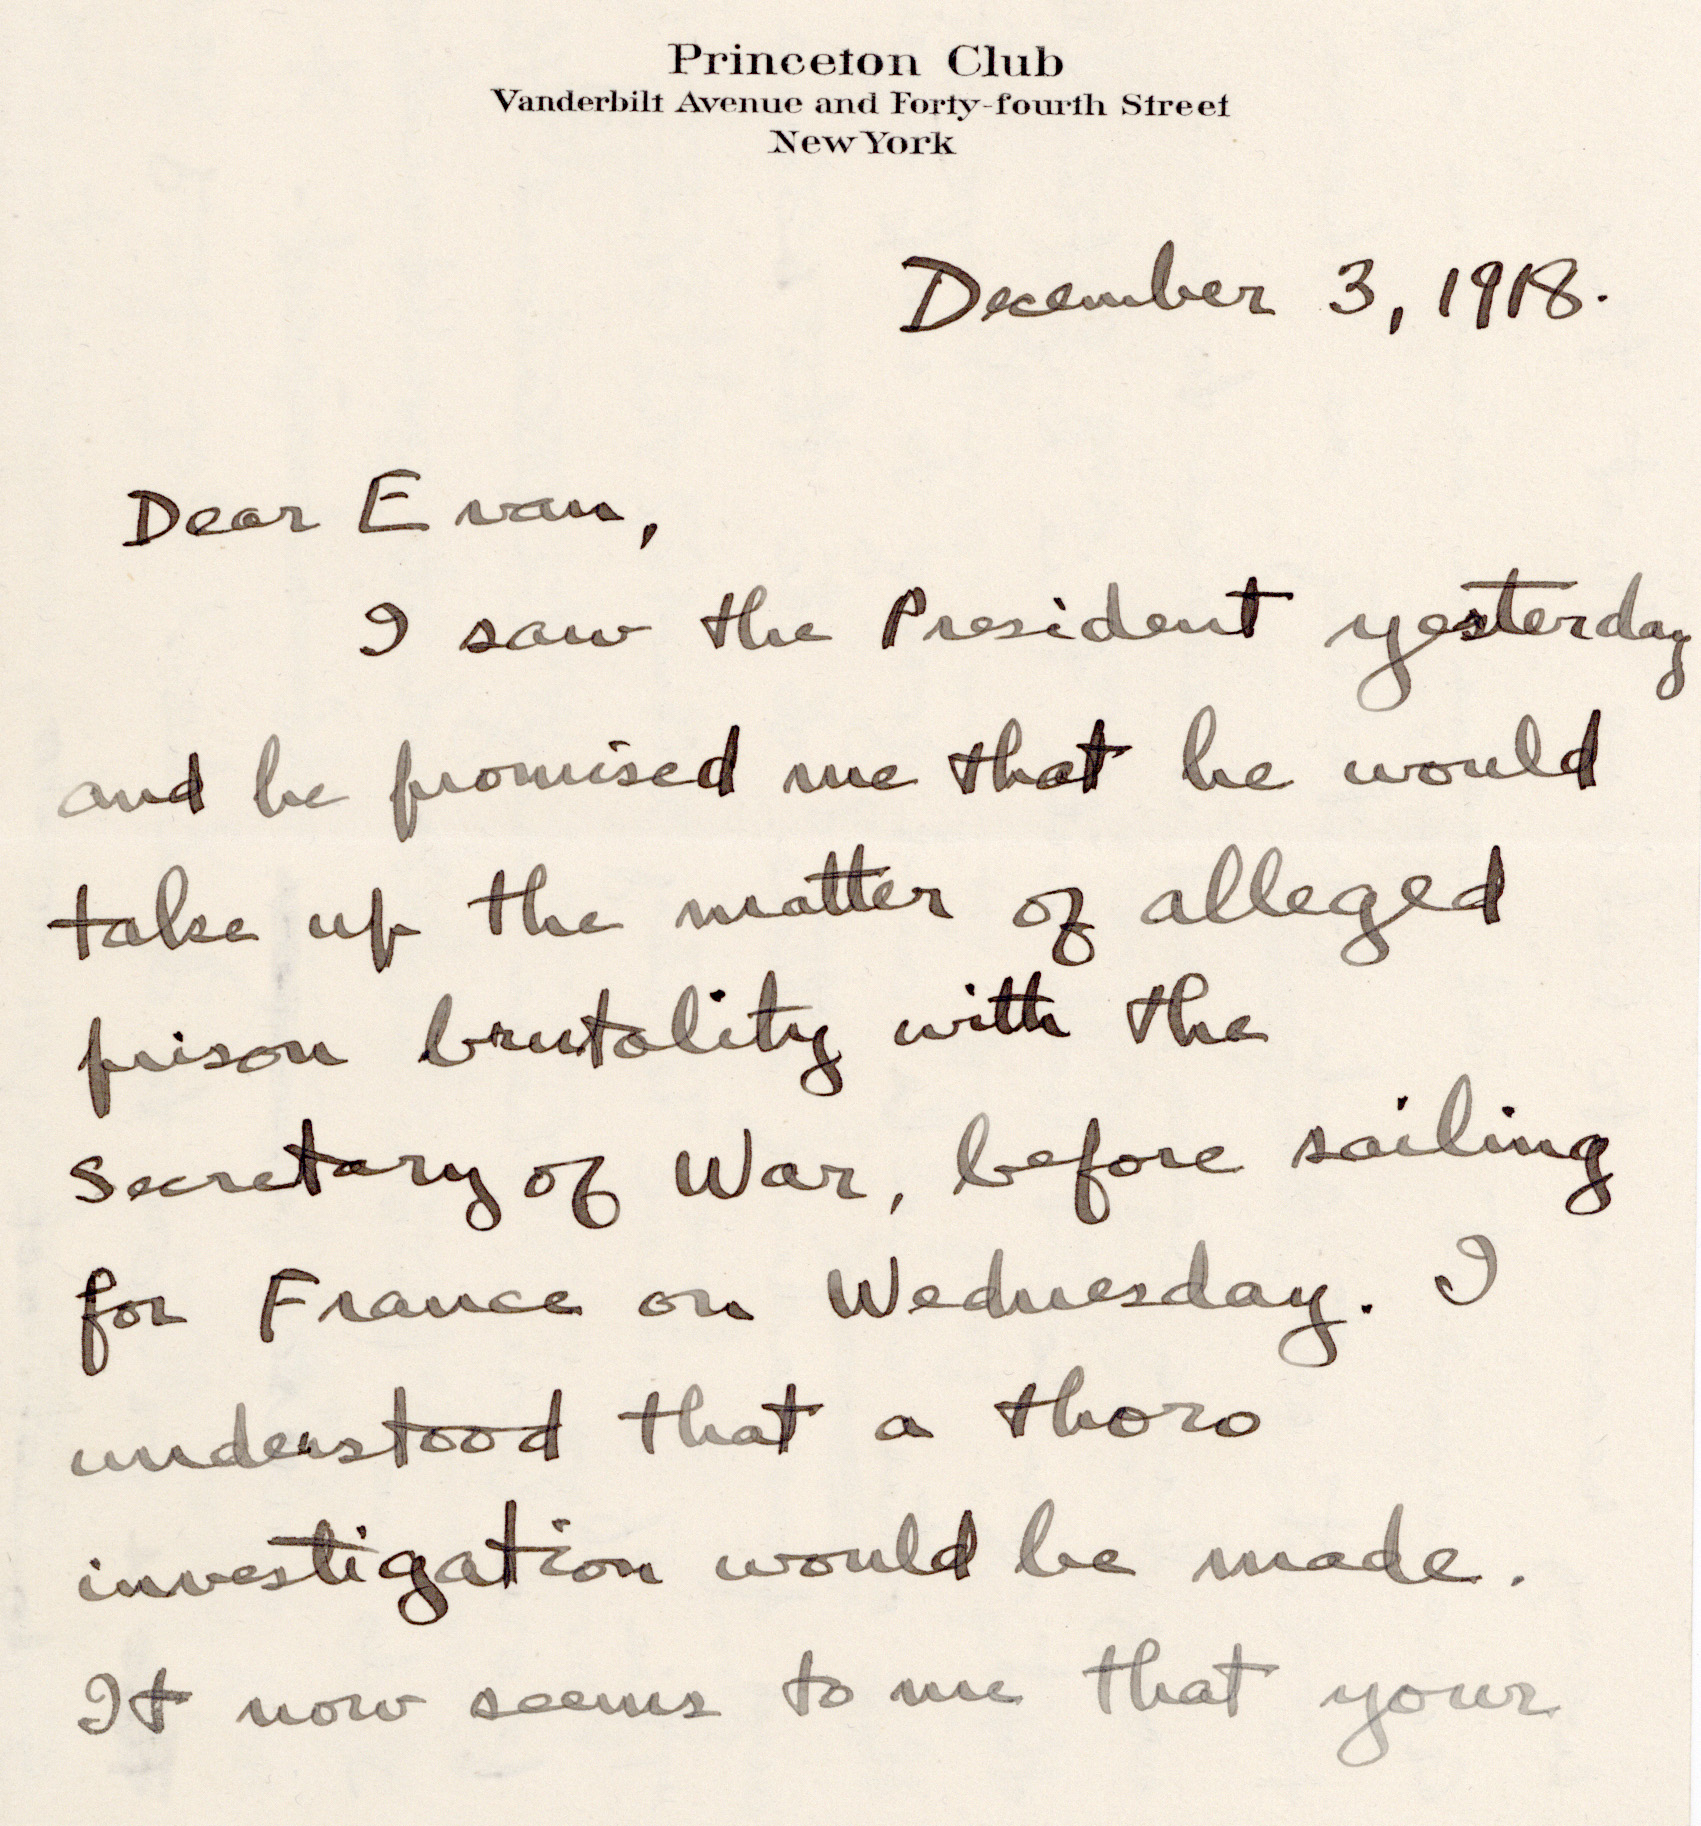 Princeton Club
Vanderbilt Avenue and Forty-fourth Street
New York
December 3, 1918.
Dear Evan,
I saw the President yesterday
and he promised me that he would
take up the matter of alleged
prison brutality with the
Secretary of War, before sailing
for France on Wednesday. I
understood that a thoro
investigation would be made.
It now seems to me that your